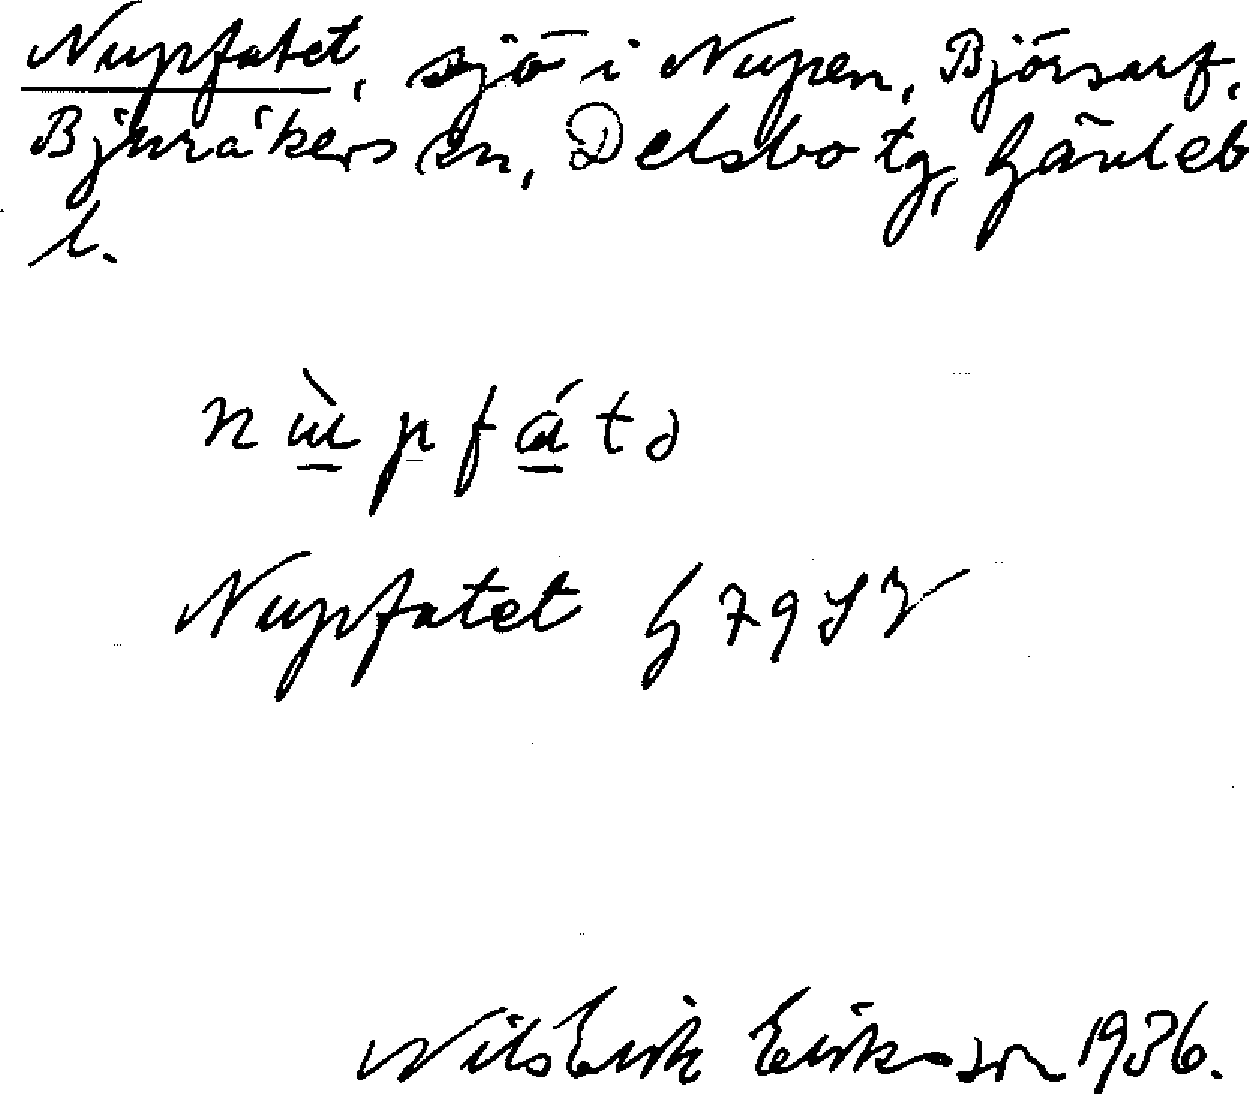 Nupfatet, sjö i Nupen, Björsarf,
Bjuråkers sn, Delsbo tg, Gävleb
l.
nu̠̇̀pfá̠tə
Nupfatet G 79 SV
Nils Erik Eriksson 1936.